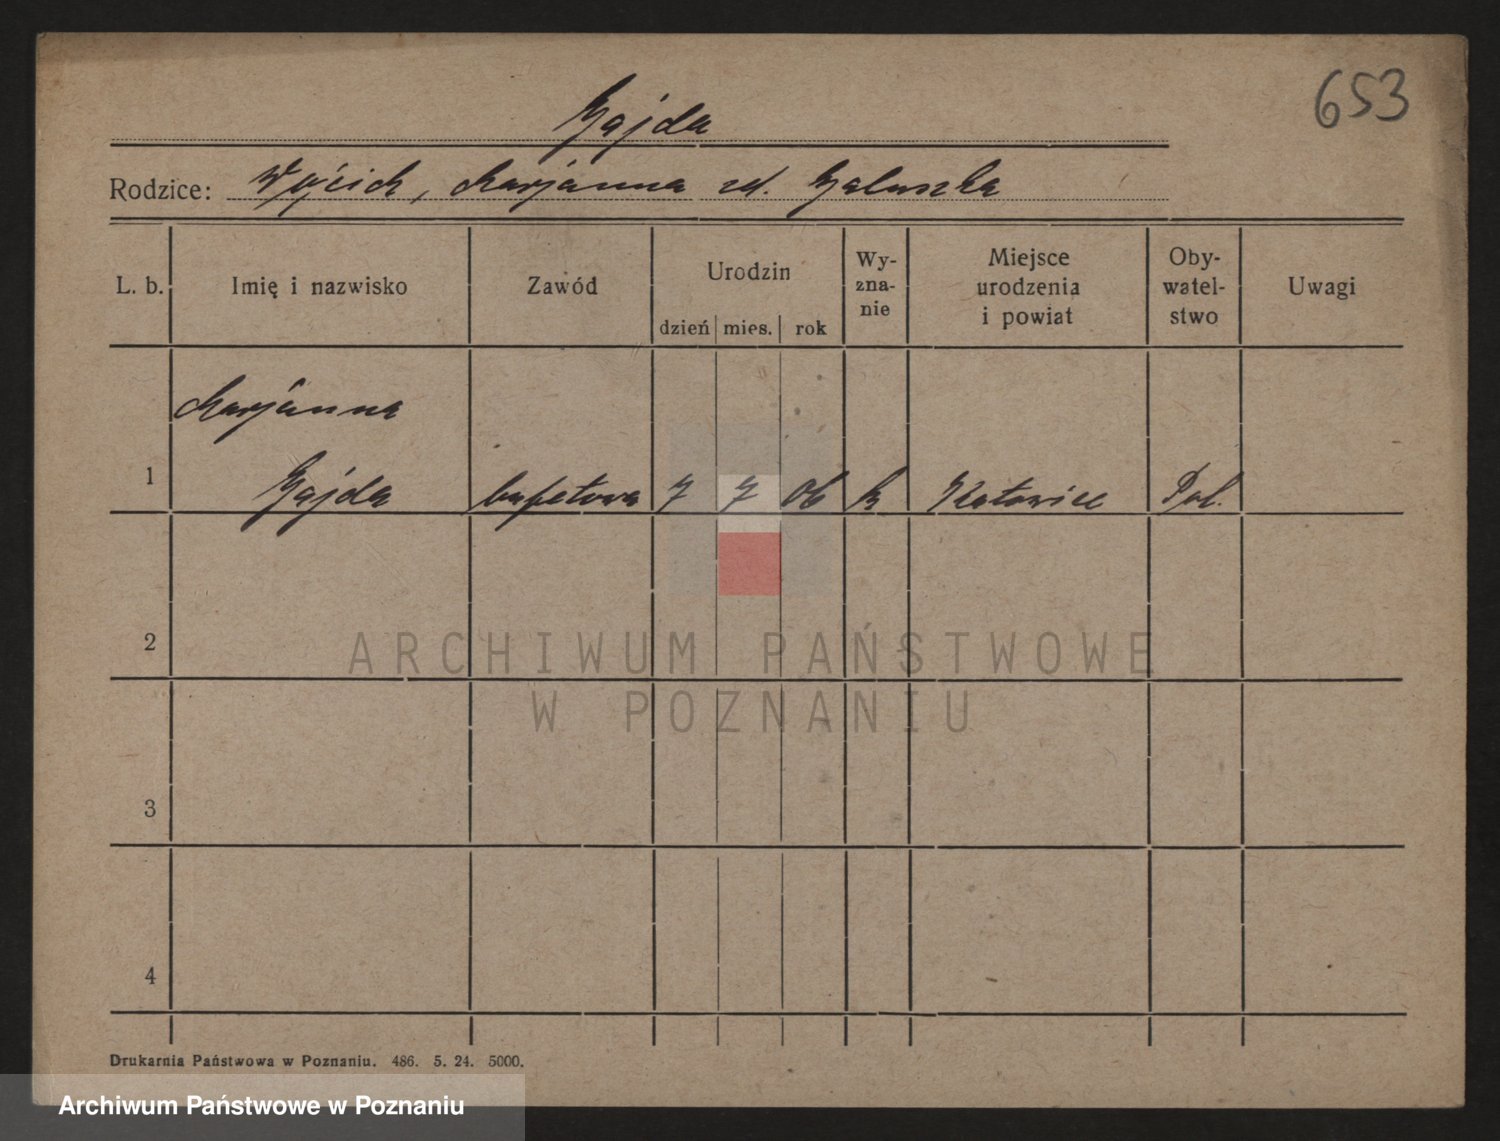 653
Gajda
Rodzice: Wojciech, Marjanna zd. Galuszka
L. b. Imię i nazwisko Zawód Urodzin dzień mies. rok Wy-zna-nie Miejsce urodzenia i powiat Oby-watel-stwo Uwagi
Marjanna
1 Gajda bufetowa 7 7 06 k Katowice Pol.
2
ARCHIWUM PAŃSTWOWE
W POZNANIU
3
4
Drukarnia Państwowa w Poznaniu. 486. 5. 24. 5000.
Archiwum Państwowe w Poznaniu